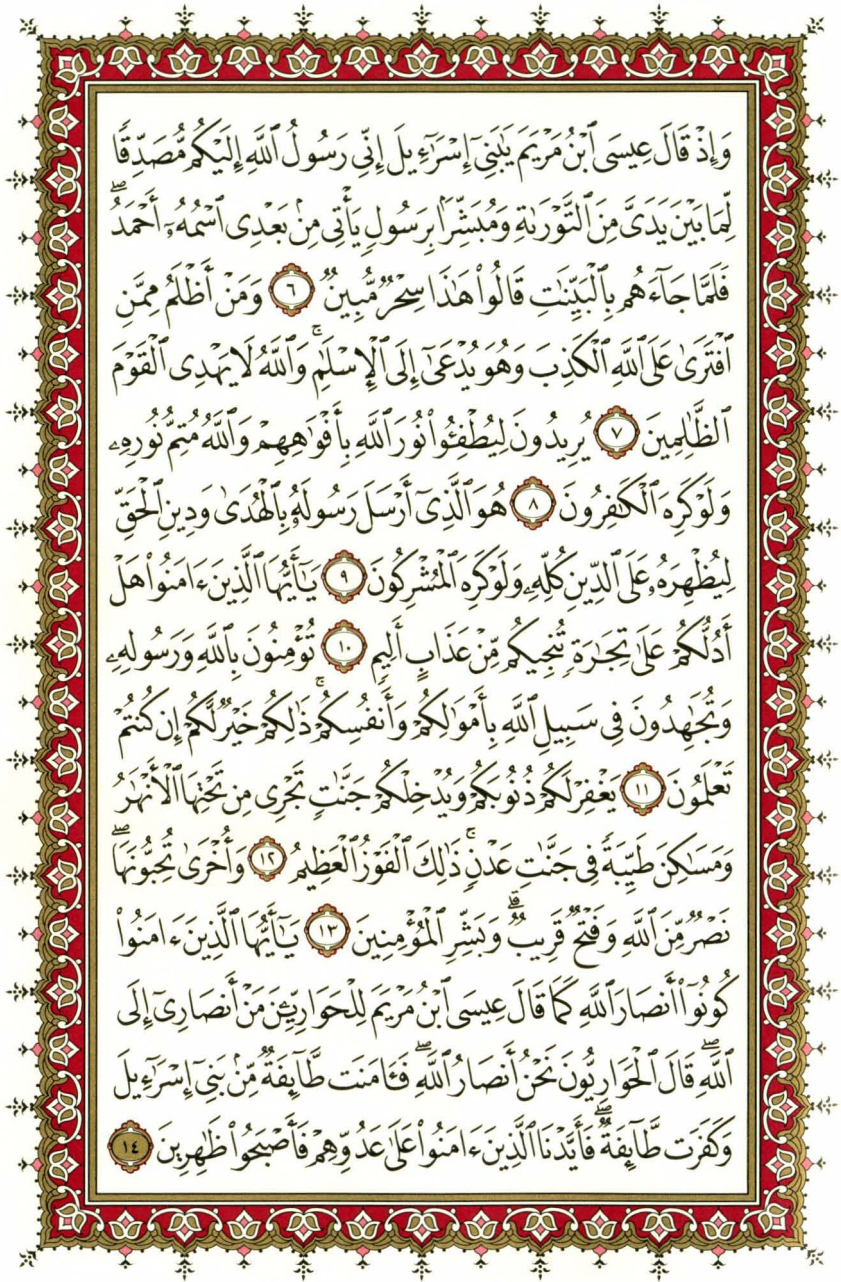 وَإِذْ قَالَ عِيسَى ٱبْنُ مَرْيَمَ يَٰبَنِىٓ إِسْرَٰٓءِيلَ إِنِّى رَسُولُ ٱللَّهِ إِلَيْكُم مُّصَدِّقًا
لِّمَا بَيْنَ يَدَىَّ مِنَ ٱلتَّوْرَىٰةِ وَمُبَشِّرًۢا بِرَسُولٍ يَأْتِى مِنۢ بَعْدِى ٱسْمُهُۥٓ أَحْمَدُ ۖ
فَلَمَّا جَآءَهُم بِٱلْبَيِّنَٰتِ قَالُوا۟ هَٰذَا سِحْرٌ مُّبِينٌ ٦ وَمَنْ أَظْلَمُ مِمَّنِ
ٱفْتَرَىٰ عَلَى ٱللَّهِ ٱلْكَذِبَ وَهُوَ يُدْعَىٰٓ إِلَى ٱلْإِسْلَٰمِ ۚ وَٱللَّهُ لَا يَهْدِى ٱلْقَوْمَ
ٱلظَّٰلِمِينَ ٧ يُرِيدُونَ لِيُطْفِـُٔوا۟ نُورَ ٱللَّهِ بِأَفْوَٰهِهِمْ وَٱللَّهُ مُتِمُّ نُورِهِۦ
وَلَوْ كَرِهَ ٱلْكَٰفِرُونَ ٨ هُوَ ٱلَّذِىٓ أَرْسَلَ رَسُولَهُۥ بِٱلْهُدَىٰ وَدِينِ ٱلْحَقِّ
لِيُظْهِرَهُۥ عَلَى ٱلدِّينِ كُلِّهِۦ وَلَوْ كَرِهَ ٱلْمُشْرِكُونَ ٩ يَٰٓأَيُّهَا ٱلَّذِينَ ءَامَنُوا۟ هَلْ
أَدُلُّكُمْ عَلَىٰ تِجَٰرَةٍ تُنجِيكُم مِّنْ عَذَابٍ أَلِيمٍ ١٠ تُؤْمِنُونَ بِٱللَّهِ وَرَسُولِهِۦ
وَتُجَٰهِدُونَ فِى سَبِيلِ ٱللَّهِ بِأَمْوَٰلِكُمْ وَأَنفُسِكُمْ ۚ ذَٰلِكُمْ خَيْرٌ لَّكُمْ إِن كُنتُمْ
تَعْلَمُونَ ١١ يَغْفِرْ لَكُمْ ذُنُوبَكُمْ وَيُدْخِلْكُمْ جَنَّٰتٍ تَجْرِى مِن تَحْتِهَا ٱلْأَنْهَٰرُ
وَمَسَٰكِنَ طَيِّبَةً فِى جَنَّٰتِ عَدْنٍ ۚ ذَٰلِكَ ٱلْفَوْزُ ٱلْعَظِيمُ ١٢ وَأُخْرَىٰ تُحِبُّونَهَا ۖ
نَصْرٌ مِّنَ ٱللَّهِ وَفَتْحٌ قَرِيبٌ ۗ وَبَشِّرِ ٱلْمُؤْمِنِينَ ١٣ يَٰٓأَيُّهَا ٱلَّذِينَ ءَامَنُوا۟
كُونُوٓا۟ أَنصَارَ ٱللَّهِ كَمَا قَالَ عِيسَى ٱبْنُ مَرْيَمَ لِلْحَوَارِيِّـۧنَ مَنْ أَنصَارِىٓ إِلَى
ٱللَّهِ ۖ قَالَ ٱلْحَوَارِيُّونَ نَحْنُ أَنصَارُ ٱللَّهِ ۖ فَـَٔامَنَت طَّآئِفَةٌ مِّنۢ بَنِىٓ إِسْرَٰٓءِيلَ
وَكَفَرَت طَّآئِفَةٌ ۖ فَأَيَّدْنَا ٱلَّذِينَ ءَامَنُوا۟ عَلَىٰ عَدُوِّهِمْ فَأَصْبَحُوا۟ ظَٰهِرِينَ ١٤